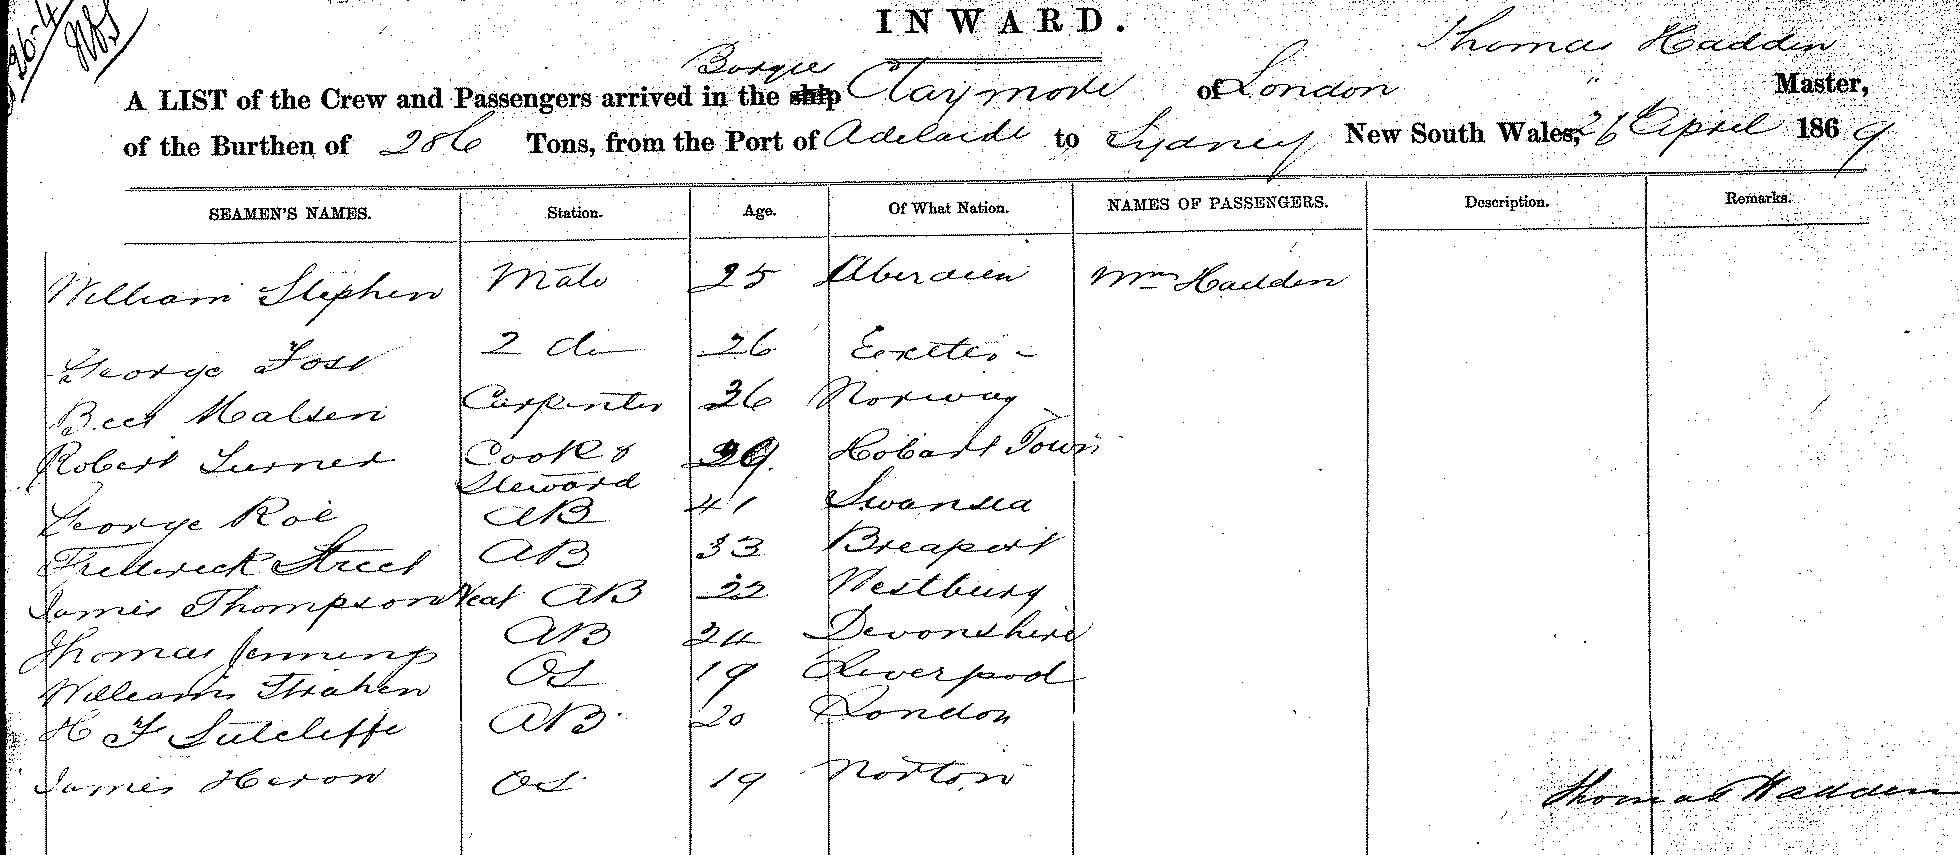 26-4
INWARD.
Thomas Hadden
Barque
A LIST of the Crew and Passengers arrived in the ship Claymore of London " Master,
of the Burthen of 286 Tons, from the Port of Adelaide to Sydney New South Wales, 26 April 1869
SEAMEN'S NAMES. Station. Age. Of What Nation. NAMES OF PASSENGERS. Description. Remarks.
William Stephen Mate 25 Aberdeen Mrs Hadden
George Foss 2 do 26 Exeter
Malsen Carpenter 36 Norway
Robert Turner Cook & 29 Hobart Town
Steward
George Roe AB 41 Swansea
Frederick Street AB 33
James Thompson AB 22 Westbury
Thomas Jennings AB 24 Devonshire
William Strahen OS 19 Liverpool
H F Sutcliffe AB 20 London
James Heron OS 19 Norton
Thomas Hadden